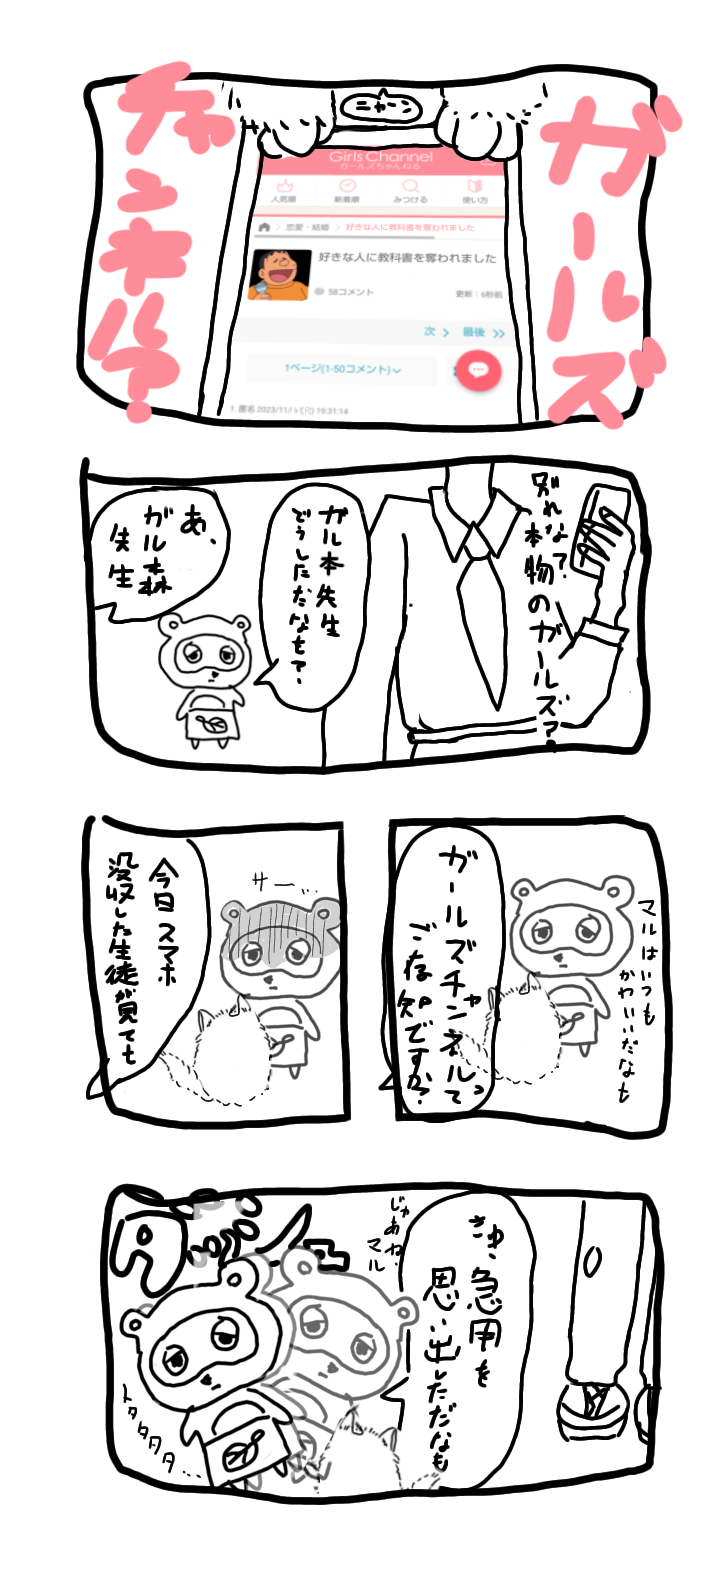 ガールズ
チャンネル?
ニャーン
Girls Channel
ガールズちゃんねる
人気順
新着順
みつける
使い方
恋愛・結婚 > 好きな人に教科書を奪われました
好きな人に教科書を奪われました
58コメント
更新:6秒前
次 >
最後 >>
1ページ(1-50コメント)
1. 匿名 2023/11/
19:31:14
別れな?
本物のガールズ?
ガル本先生
どうしただなも?
あ、
ガル森
先生
マルはいつも
かわいいだなも
ガールズチャンネルって
ご存知ですか?
今日スマホ
没収した生徒が見てて
サー…
きゅ、急用を
思い出しただなも
じゃあね
マル
ダ
トタタタタ…